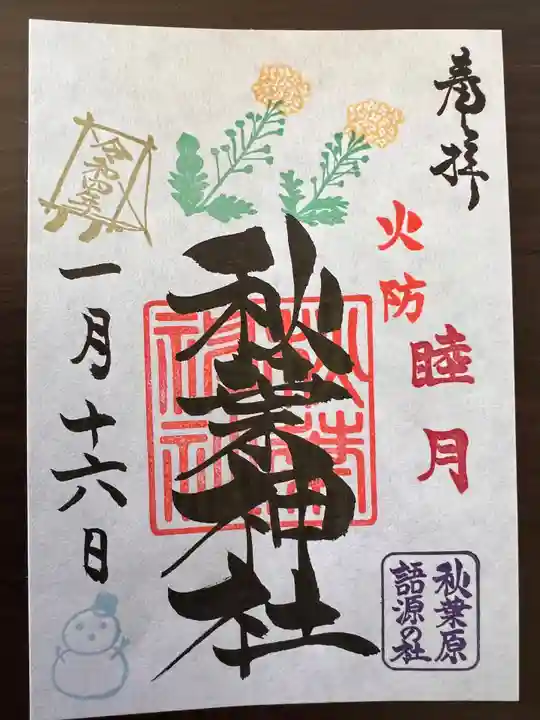 奉拝
火防
睦月
秋葉神社
秋葉神社
令和四年
一月十六日
秋葉原
語源の社